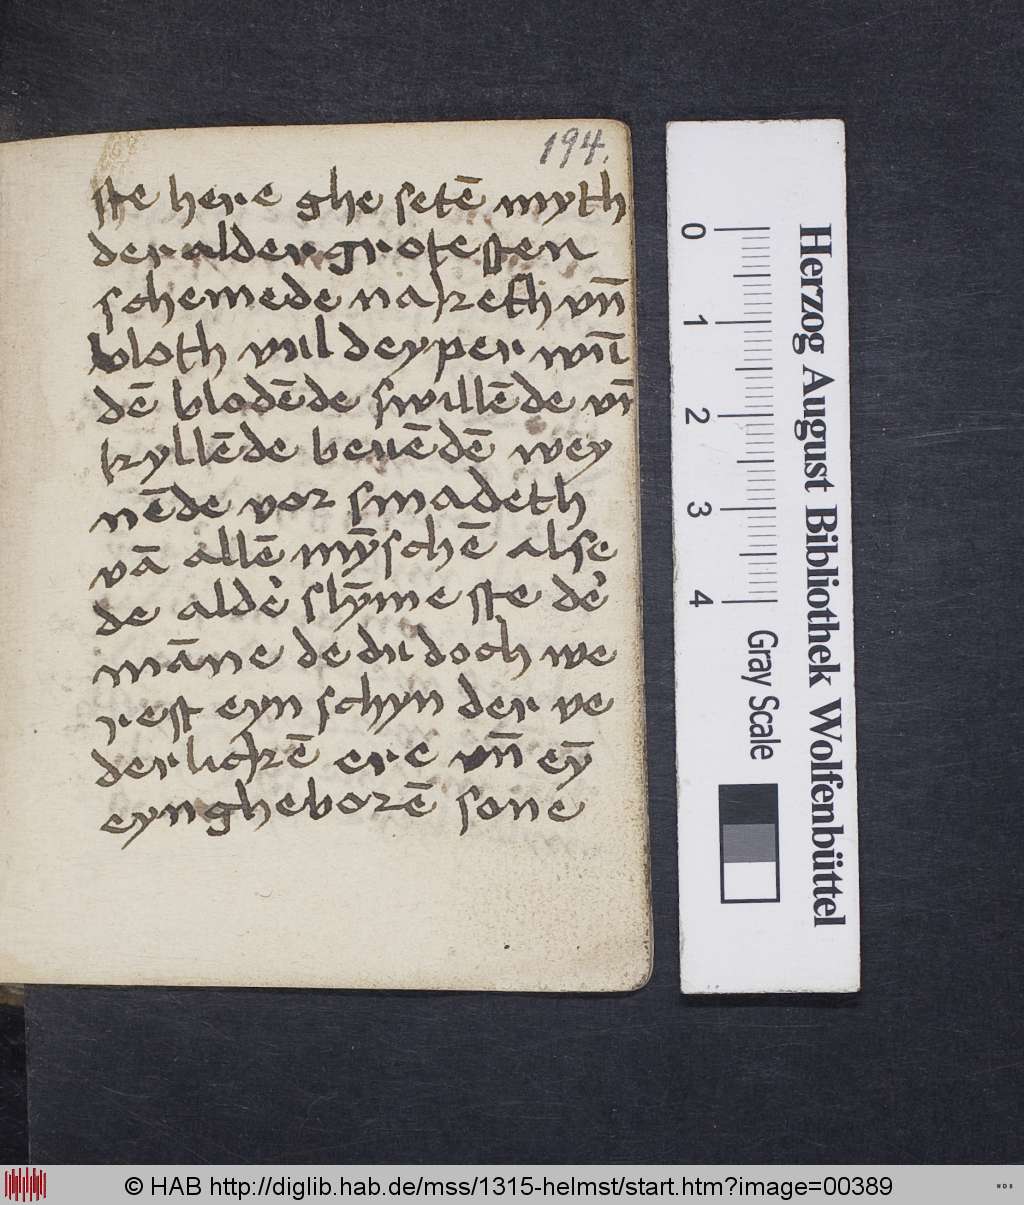 194.
ste here ghe setē myth
der alder grotesten
schemede naketh vn̄
bloth vul deyper wū
dē blodēde swillēde vn̄
kyllēde beuēdē wey
nēde vor smadeth
vā allē mȳschē alse
de alde' slȳmeste de'
māne de du doch we
rest eyn schyn der ve
derlickē ere vn̄ eȳ
eyngheborē sone
0
1
2
3
4
Gray Scale
Herzog August Bibliothek Wolfenbüttel
© HAB http://diglib.hab.de/mss/1315-helmst/start.htm?image=00389
WDB